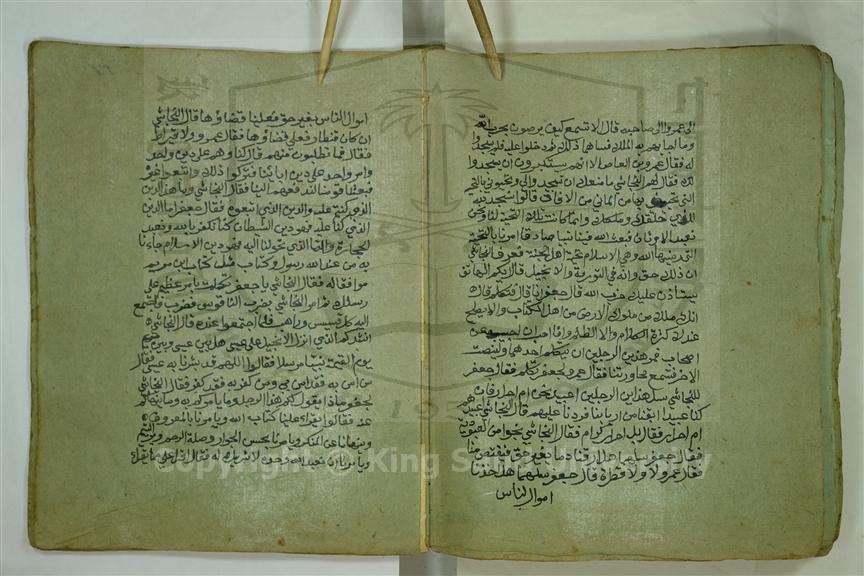 الى عمرو والى صاحبه قال الا تسمع كيف يرصون بحزب الله
وما اجابهم به الملك فساهما ذلك ثم دخلوا عليه فلم يسجدوا
له فقال عمرو بن العاص الا انهم يستكبرون ان يسجدوا
لك فقال لهم النجاشي ما منعكم ان تسجدوا لي وتحيوني بالتحية
التي يحييني بها من اتاني من الافاق قالوا نسجد لله
الذي خلقك وملكك وانما كانت تلك التحية لنا ونحن
نعبد الاوثان فبعث الله فينا نبيا صادقا وامرنا بالتحية
التي رضيها الله وهي السلام تحية اهل الجنة فعرف النجاشي
ان ذلك حق وانه في التورية والانجيل قال ايكم الهاتف
يستاذن عليك حزب الله قال جعفر انا قال فتكلم قال
انك ملك من ملوك الارض من اهل الكتاب ولا يصلح
عندك كثرة الكلام ولا الظلم وانا احب ان اجيب عن
اصحابي فمر هذين الرجلين ان يتكلم احدهما ولينصت
الاخر فتسمع محاورتنا فقال عمرو لجعفر تكلم فقال جعفر
للنجاشي سل هذين الرجلين اعبيد نحن ام احرار فان
كنا عبيدا ابقنا من اربابنا فردنا عليهم قال النجاشي اعبيد هم
ام احرار فقال بل احرار كرام فقال النجاشي نجوا من العبودية
فقال جعفر سلهما هل ارقنا دما بغير حق فيقتص منا
فقال عمرو لا ولا قطرة قال جعفر سلهما هل اخذنا
اموال الناس
اموال الناس بغير حق فعلينا قضاؤها قال النجاشي
ان كان قنطارا فعلي قضاؤها فقال عمرو ولا قيراط
فقال فما تطلبون منهم قال كنا وهم على دين واحد
وامر واحد على دين ابائنا فتركوا ذلك واتبعوا غيره
فبعثنا قومنا لتدفعهم الينا فقال النجاشي وما هذا الدين
الذي كنتم عليه والدين الذي اتبعتموه فقال جعفر اما الدين
الذي كنا عليه فهو دين الشيطان كنا نكفر بالله ونعبد
الحجارة واما الذي تحولنا اليه فهو دين الاسلام جاءنا
به من عند الله رسول وكتاب مثل كتاب ابن مريم
موافقا له فقال النجاشي يا جعفر تكلمت بامر عظيم على
رسلك ثم امر النجاشي بضرب الناقوس فضرب فاجتمع
اليه كل قسيس وراهب فلما اجتمعوا عنده قال النجاشي
انشدكم الذي انزل الانجيل على عيسى هل بين عيسى وبين
يوم القيمة نبيا مرسلا فقالوا اللهم قد بشرنا به عيسى فقال
من امن به فقد امن بي ومن كفر به فقد كفر فقال النجاشي
لجعفر ماذا يقول لكم هذا الرجل وما يامركم به وما ينهاكم
عنه فقالوا يقراء علينا كتاب الله ويامرنا بالمعروف
وينهانا عن المنكر ويامرنا بحسن الجوار وصلة الرحم وبر اليتيم
ويامرنا ان نعبد الله وحده لا شريك له فقال اقرا علي ما يقراء
Copyright © King Saud University